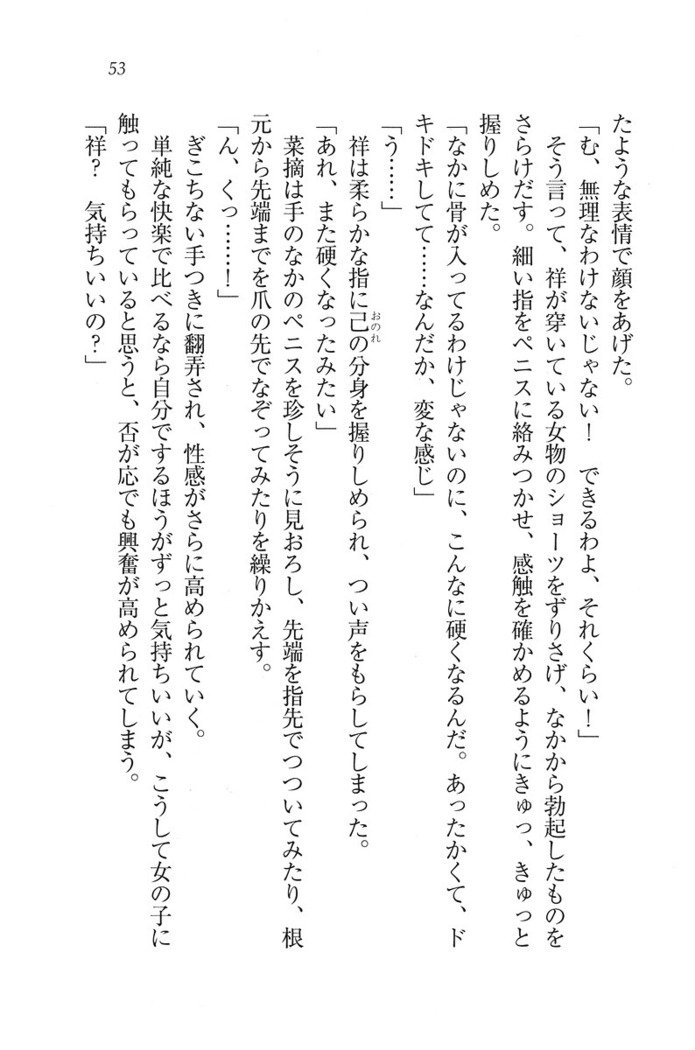 53
たような表情で顔をあげた。
「む、無理なわけないじゃない！　できるわよ、それくらい！」
　そう言って、祥が穿いている女物のショーツをずりさげ、なかから勃起したものを
さらけだす。細い指をペニスに絡みつかせ、感触を確かめるようにきゅっ、きゅっと
握りしめた。
「なかに骨が入ってるわけじゃないのに、こんなに硬くなるんだ。あったかくて、ド
キドキしてて……なんだか、変な感じ」
「う……」
　祥は柔らかな指に己おのれの分身を握りしめられ、つい声をもらしてしまった。
「あれ、また硬くなったみたい」
　菜摘は手のなかのペニスを珍しそうに見おろし、先端を指先でつついてみたり、根
元から先端までを爪の先でなぞってみたりを繰りかえす。
「ん、くっ……！」
　ぎこちない手つきに翻弄され、性感がさらに高められていく。
　単純な快楽で比べるなら自分でするほうがずっと気持ちいいが、こうして女の子に
触ってもらっていると思うと、否が応でも興奮が高められてしまう。
「祥？　気持ちいいの？」